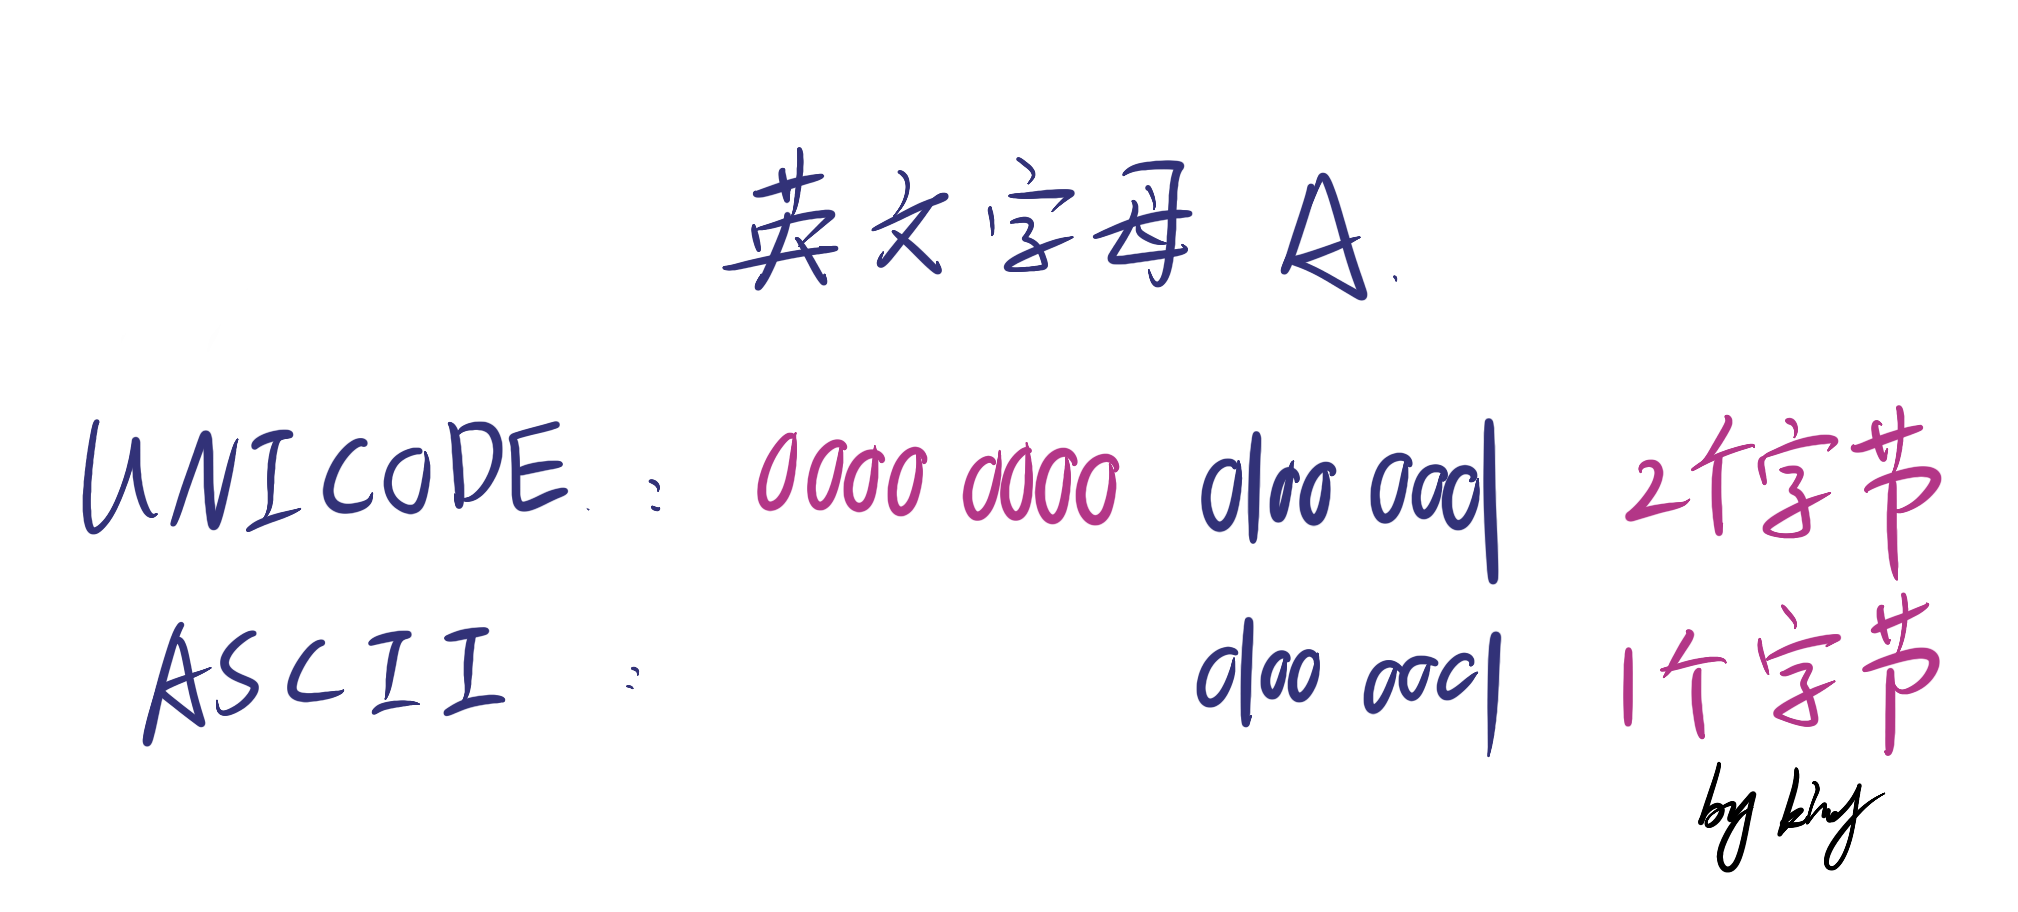 英文字母 A.
UNICODE : 0000 0000 0100 0001 2个字节
ASCII : 0100 0001 1个字节
by king